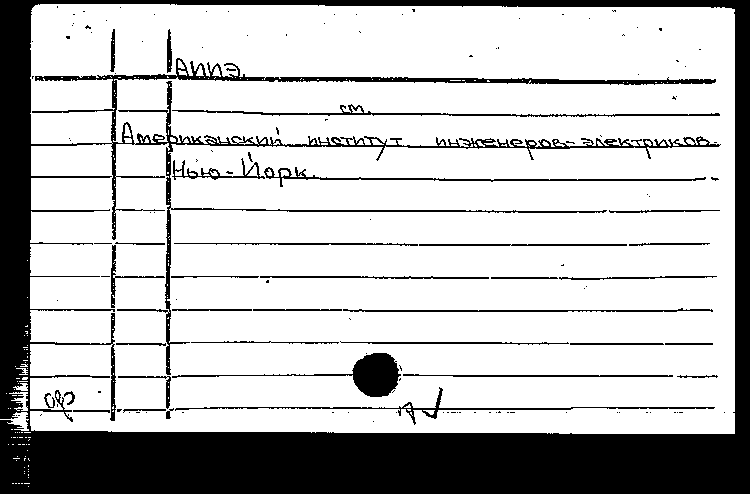 АИИЭ.
см.
Американский институт инженеров-электриков.
Нью-Йорк.